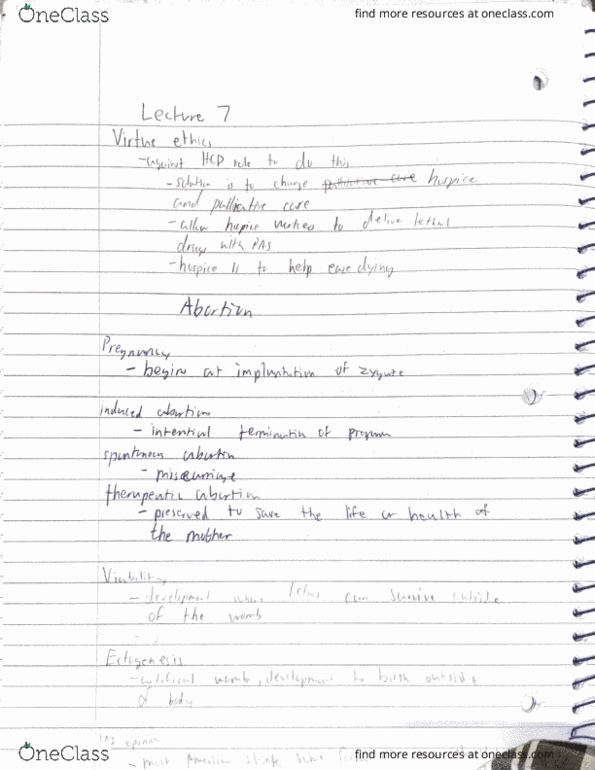 OneClass
find more resources at oneclass.com
Lecture 7
Virtue ethics
- against HCP role to do this
- solution is to change palliative care hospice
and palliative care
- allow hospice to lethal
drugs with PAS
- hospice is to help ease dying
Abortion
Pregnancy
- begins at implantation of zygote
induced abortion
- intential termination of
spontaneous abortion
- miscarriage
therapeutic abortion
- preserved to save the life or health of
the mother
Viability
- development where fetus can survive outside
of the womb
Ectogenesis
- artificial womb, development to birth outside
of body
US opinion
- most American think some
OneClass
find more resources at oneclass.com